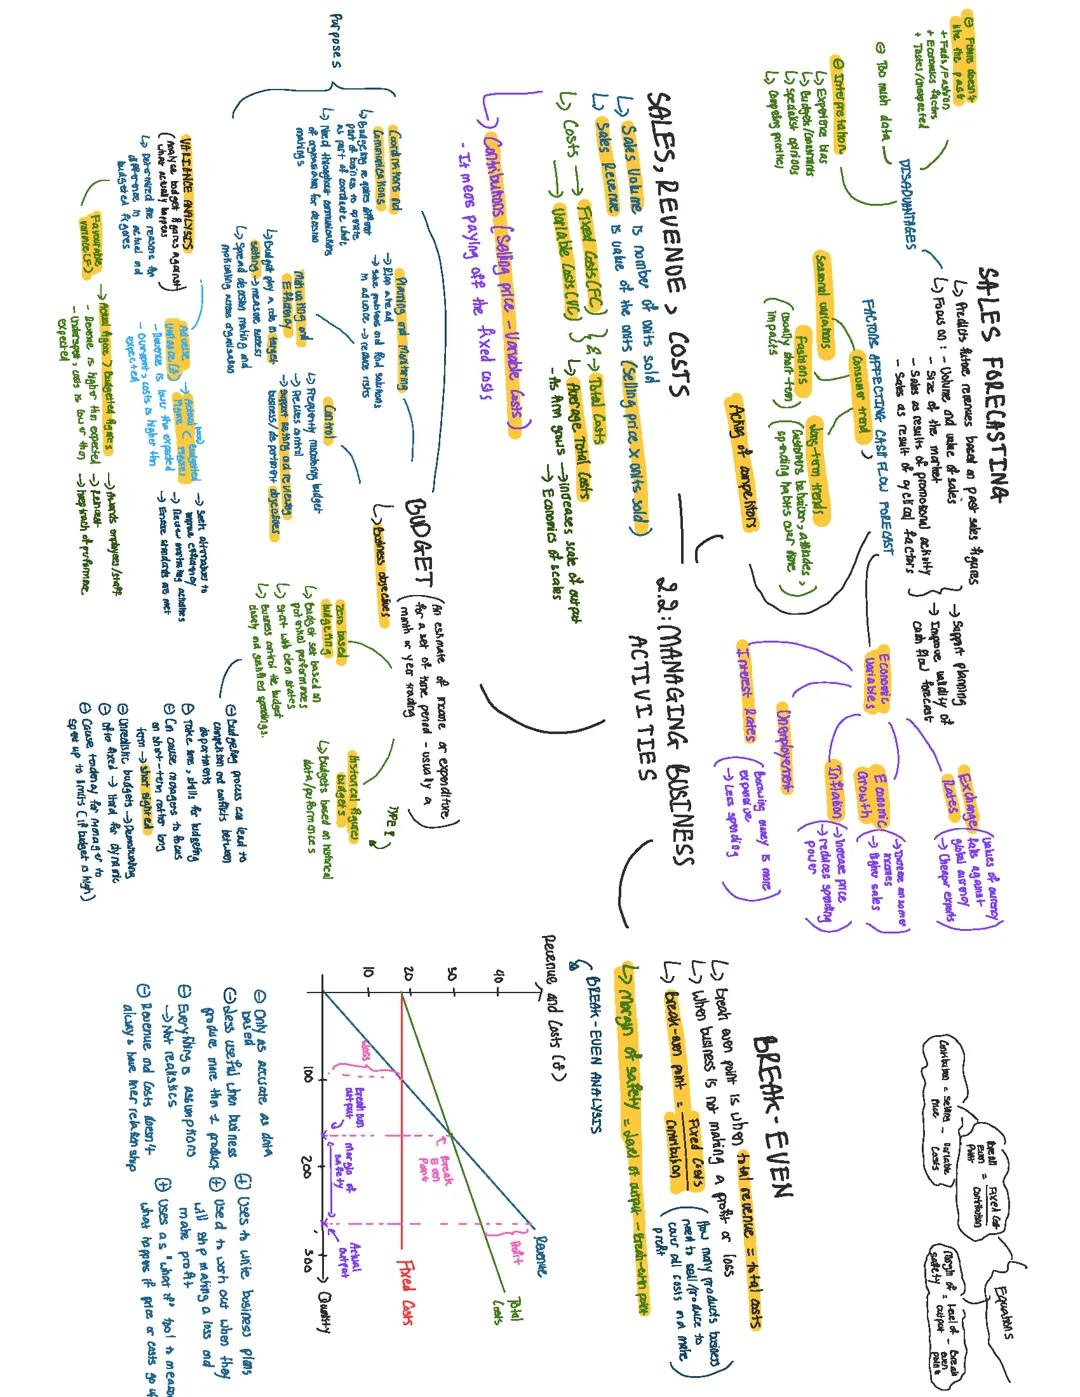 2.2: MANAGING BUSINESS
ACTIVITIES
SALES FORECASTING
↳ Predicts future revenues based on past sales figures
↳ Focus on: - Volume and value of sales
- Size of the market
- Sales as results of promotional activity
- Sales as result of cyclical factors
→ Support planning
→ Improve validity of
cash flow forecast
DISADVANTAGES
⊖ Future doesn't
like the past
+ Fads/Fashion
+ Economics factors
+ Tastes/Unexpected
⊖ Too much data
⊖ Interpretation
↳ Experience bias
↳ Budgets/constraints
↳ Specialist opinions
↳ Competing priorities
FACTORS AFFECTING CASH FLOW FORECAST
Consumer trend
Seasonal variations
Fashions
(usually short-term)
impacts
Long-term trends
(customers behavior, attitudes,
spending habits over time)
Acting of competitors
Economic
variables
Exchange
Rates
(values of currency
falls against
global currency
→ Cheaper exports)
Economic
Growth
(→ Increase consumer
incomes
→ Higher sales)
Inflation
(→ Increase price
→ reduces spending
power)
Unemployement
Interest Rates
(borrowing money is more
expensive
→ Less spending)
SALES, REVENUE > COSTS
↳ Sales Volume is number of units sold
↳ Sales Revenue is value of the units (selling price x units sold)
↳ Costs → Fixed Costs (FC)
→ Variable Costs (VC)
} & → Total Costs
↳ Average Total Costs
- As firm grows → increases scale of output
→ Economics of scales
↳ Contributions (Selling price - Variable Costs)
- It means paying off the fixed costs
BUDGET
(An estimate of income or expenditure
for a set of time period - usually a
month or year trading)
↳ Business objectives
Purposes
Coordinations and
Communications
↳ Budgeting requires different
part of business to operate
as part of coordinate whole
↳ Need throughout communications
of organisation for decision
makings
Planning and Monitoring
→ Plan ahead
→ Solve problems and find solutions
in advance → reduce risks
Motivating and
Efficiency
↳ Budget play a role in target
setting → measure success
↳ Spread decision making and
motivating across organisation
Control
↳ Frequently monitoring budget
→ Precises control
→ Support setting and reviewing
business/department objectives
TYPES
zero based
budgeting
↳ Budget set based on
potential performances
↳ Start with clean slates
↳ Business control the budget
closely and justified spendings.
Historical figures
budgets
↳ Budgets based on historical
data/performances
⊖ Budgeting process can lead to
competition and conflicts between
departments
⊖ Take time, skills for budgeting
⊖ Can cause managers to focus
on short-term rather long
term → short sighted
⊖ Unrealistic budgets → Demotivating
⊖ Often fixed → Hard for dynamic
⊖ Cause tendency for manager to
spent up to limits (if budget is high)
VARIANCE ANALYSIS
(Analyse budget figures against
what actually happens)
↳ Determined the reasons for
difference in actual and
budgeted figures
Adverse
Variance (A) → Actual Figure < Budgeted figures
- Revenue is lower than expected
- Overspent, costs is higher than
expected
→ Seeks alternatives to
improve efficiency
→ Review marketing activities
→ Ensure standards are met
Favourable
variance (F) → Actual figure > Budgeted figures
- Revenue is higher than expected
- Underspent, costs is lower than
expected
→ Awards employees/staff
→ Reinvest
→ Keep track of performance
BREAK-EVEN
↳ break even point is when total revenue = total costs
↳ When business is not making a profit or loss
↳ break-even point = Fixed Costs
Contribution
(How many products business
need to sell/produce to
cover all costs and make
profit)
↳ Margin of safety = Level of output - break-even point
BREAK-EVEN ANALYSIS
Revenue and Costs (£)
40
30
20
10
100
200
300
Quantity
Revenue
Total
Costs
Fixed Costs
Profit
Break
Even
Point
Loss
break even
output
Margin of
safety
Actual
output
⊖ Only as accurate as data
based
⊖ Less useful when business
produce more than 1 product
⊖ Everything is assumptions
→ Not realistics
⊖ Revenue and costs doesn't
always have liner relationship
⊕ Uses to write business plans
⊕ Used to work out when they
will stop making a loss and
make profit
⊕ Uses as "what if" tool to measure
what happens if price or costs go up
Equations
Break
even
Point = Fixed Cost
Contribution
Contribution = Selling
Price - Variable
Costs
Margin of
safety = Level of
output - break
even
point